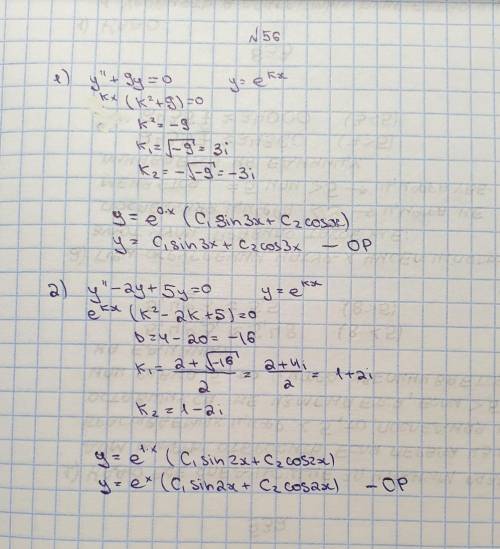 №56
1) y'' + 9y = 0   y = e^kx
e^kx (k² + 9) = 0
k² = -9
k₁ = √-9 = 3i
k₂ = -√-9 = -3i
y = e^0·x (C₁ sin3x + C₂ cos3x)
y = C₁ sin3x + C₂ cos3x — ОР
2) y'' - 2y + 5y = 0   y = e^kx
e^kx (k² - 2k + 5) = 0
D = 4 - 20 = -16
k₁ = (2 + √-16)/2 = (2 + 4i)/2 = 1 + 2i
k₂ = 1 - 2i
y = e^1·x (C₁ sin2x + C₂ cos2x)
y = e^x (C₁ sin2x + C₂ cos2x) — ОР